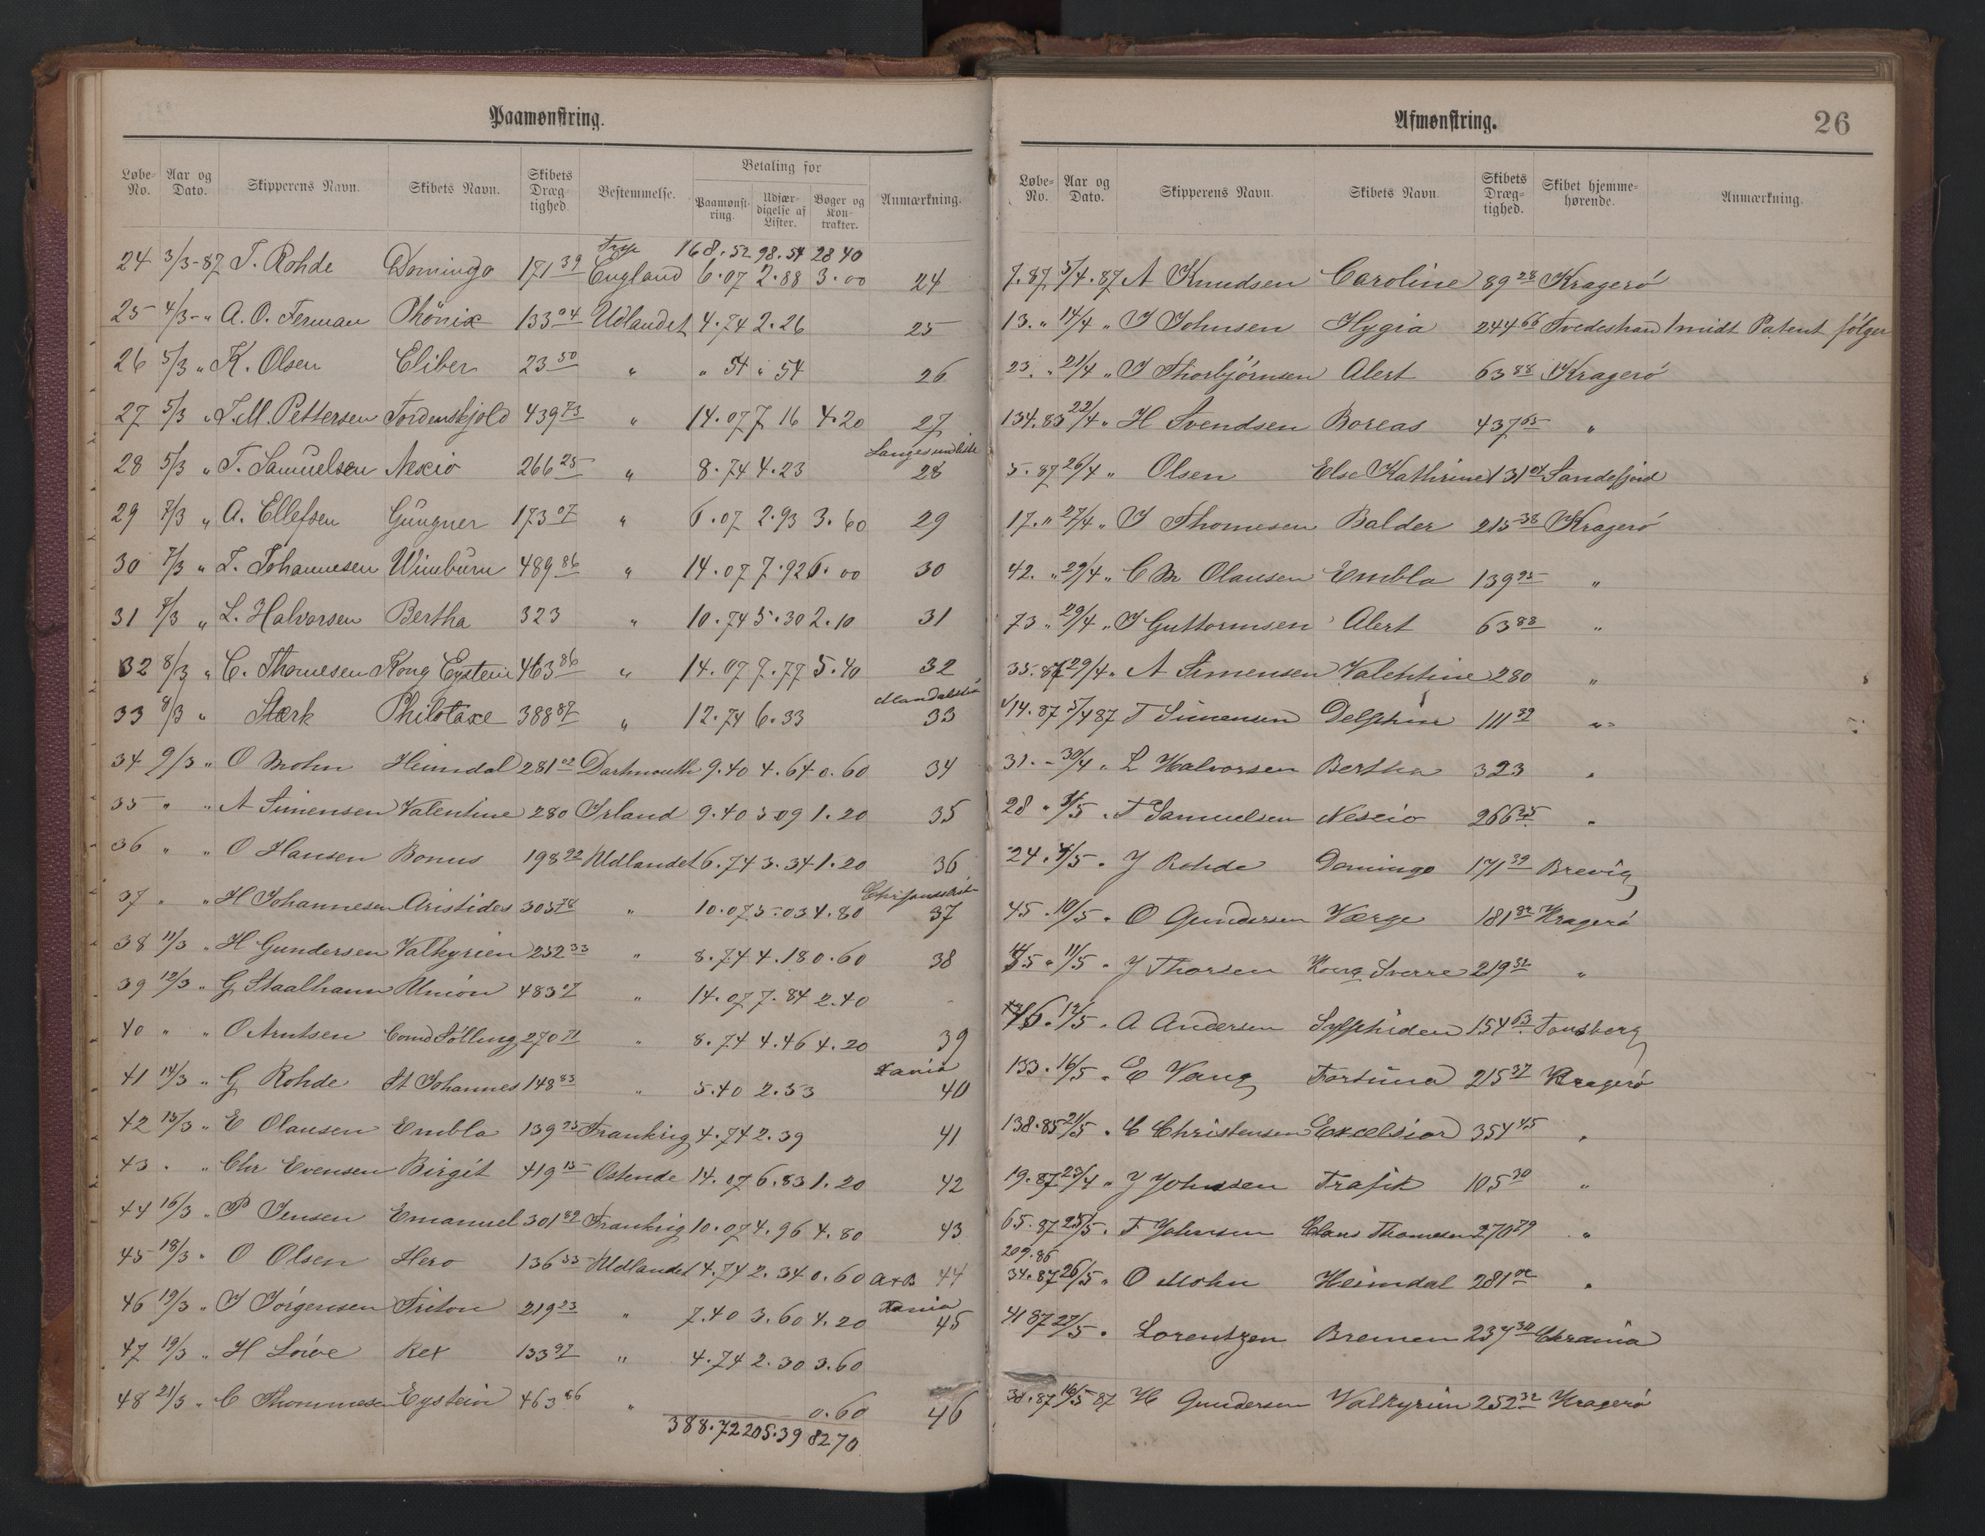 Paamønstring.
Løbe-No. Aar og Dato. Skipperens Navn. Skibets Navn. Skibets Dræg-tighed. Bestemmelse. Betaling for Paamønst-ring. Udfær-digelse af Lister. Bøger og Kon-trakter. Anmærkning.
168.52 98.54 28 40
24 3/3-87 T. Rohde Domingo 171 39 England 6.07 2.88 3.00 24
25 4/3 - " A. O. Ferman Phönix 133 04 Udlandet 4.74 2.26 25
26 5/3 " K. Olsen Eliber 23 50 " " 54 " 54 26
27 5/3 " T. M. Pettersen Tordenskjold 439 73 " 14.07 7 16 4.20 27
28 5/3 " T. Samuelsen Nexio 266 25 " 8.74 4.23 28
29 7/3 " A. Ellefsen Gungner 173 07 " 6.07 2.93 3.60 29
30 7/3 " T. Johannesen Wimburn 489 86 " 14.07 7.92 6.00 30
31 8/3 " L. Halvorsen Bertha 323 " 10.74 5.30 2.10 31
32 8/3 " C. Thomesen Kong Eystein 463 86 " 14.07 7.77 5.40 32
33 8/3 " Stærk Philotaxe 388 87 " 12.74 6.33 33
34 9/3 " O Mohn Heimdal 281 02 Dartmouth 9.40 4.64 0.60 34
35 " " A Simensen Valentine 280 Irland 9.40 5.09 1.20 35
36 " " O Hansen Bonus 198 92 Udlandet 6.74 3.34 1.20 36
37 " " H Johannesen Aristides 303 78 " 10.07 5.03 4.80 37
38 11/3 " H Gundersen Valkyrien 252 33 " 8.74 4.18 0.60 38
39 12/3 " G Staalhann Union 483 07 " 14.07 7.84 2.40
40 " " O Arntsen Comd Tölling 270 71 " 8.74 4.46 4.20 39
41 14/3 " G Rohde St Johannes 148 83 " 5.40 2.53 40
42 15/3 " E Olausen Embla 139 95 Frankrig 4.74 2.39 41
43 " " Chr Evensen Birgit 419 15 Ostende 14.07 6.83 1.20 42
44 16/3 " P Jensen Emanuel 301 89 Frankrig 10.07 4.96 4.80 43
45 18/3 " O Olsen Hero 136 33 Udlandet 4.74 2.34 0.60 A+B 44
46 19/3 " J Jörgensen Triton 219 23 " 7.40 3.60 4.20 45
47 19/3 " H Löwe Rex 133 97 " 4.74 2.30 3.60
48 21/3 " C Thommesen Eystein 463 86 " 0.60 46
388.72 205.39 82 70
Afmønstring.
26
Løbe-No. Aar og Dato. Skipperens Navn. Skibets Navn Skibets Dræg-tighed. Skibet hjemme-hørende. Anmærkning.
7.87 5/4.87 A Knudsen Caroline 89 28 Kragerö
13. " 14/4 " J Johnsen Hygia 244 66 Tvedestrand Patent fölger
23. " 21/4 " J Thorbjörnsen Alert 63 88 Kragerö
134.85 22/4 " H Svendsen Boreas 437 65 "
5.87 26/4 " Olsen Else Kathrine 131 04 Sandefjord
17. " 27/4 " J Thomesen Balder 215 38 Kragerö
42. " 29/4 " C M Olausen Embla 139 95 "
73 " 29/4 " J Guttormsen Alert 63 88 "
35.87 29/4 " A Simensen Valentine 280 "
14.87 5/4 87 T Simensen Delphin 111 89 "
31. - 30/4 " L Halvorsen Bertha 323 "
28 " 3/5 " T Samuelsen Nescio 266 25 "
24. " 7/5 " J Rohde Domingo 171 39 Brevig
45. 10/5 " O Gundersen Værge 181 92 Kragerö
11/5 " J Thorsen Kong Sverre 219 32 "
12/5 " A Andersen Sylphiden 154 63 Tönsberg
133. 16/5 " E Vang Fortuna 215 37 Kragerö
138.85 21/5 " C Christensen Excelsior 354 45 "
19.87 23/4 " J Johnsen Trafik 105 30 "
65.87 25/5 " F Johnsen Claus Thomesen 270 79 "
209.86
34.87 26/5 " O Mohn Heimdal 281 02 "
41 87 27/5 " Lorentzen Bremen 237 30 Chrania
38.87 16/5 87 H Gundersen Valkyrien 252 32 Kragerö